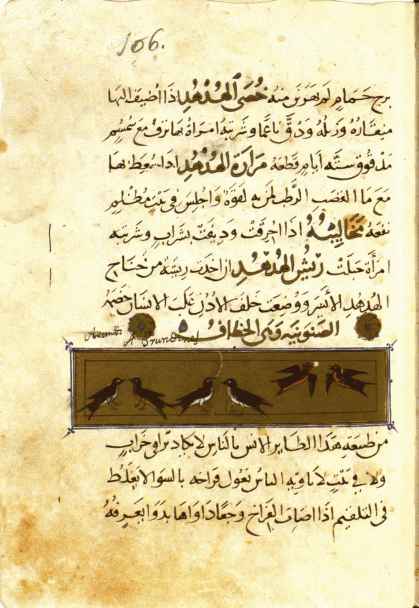 106.
برج حمام لم يقربن منه خصى الهدهد اذا اضيف اليها
منقاره وزبله ودق ناعما وشربته امراة بها نزف مع سمسم
مدقوق ستة ايام قطعه مرارة الهدهد اذا سعط بها
مع ما الغصب الرطب لمن به لقوة واجلس فى بيت مظلم
نفعه مخاليبه اذا احرقت وديفت بشراب وشربته
امراة حبلت ريش الهدهد ان اخذت ريشة من جناح
الهدهد الايسر ووضعت خلف الاذن غلب الانسان خصمه
الصنونيه وهى الخطاف
من طبيعة هذا الطاير الانس بالناس لا يكاد يرا فى خراب
ولا فى بيت لا ياويه الناس يعول فراخه بالسوا لا يغلط
فى التلقيم اذا اصاب الفراخ وجعا داواها بدوا يعرفه